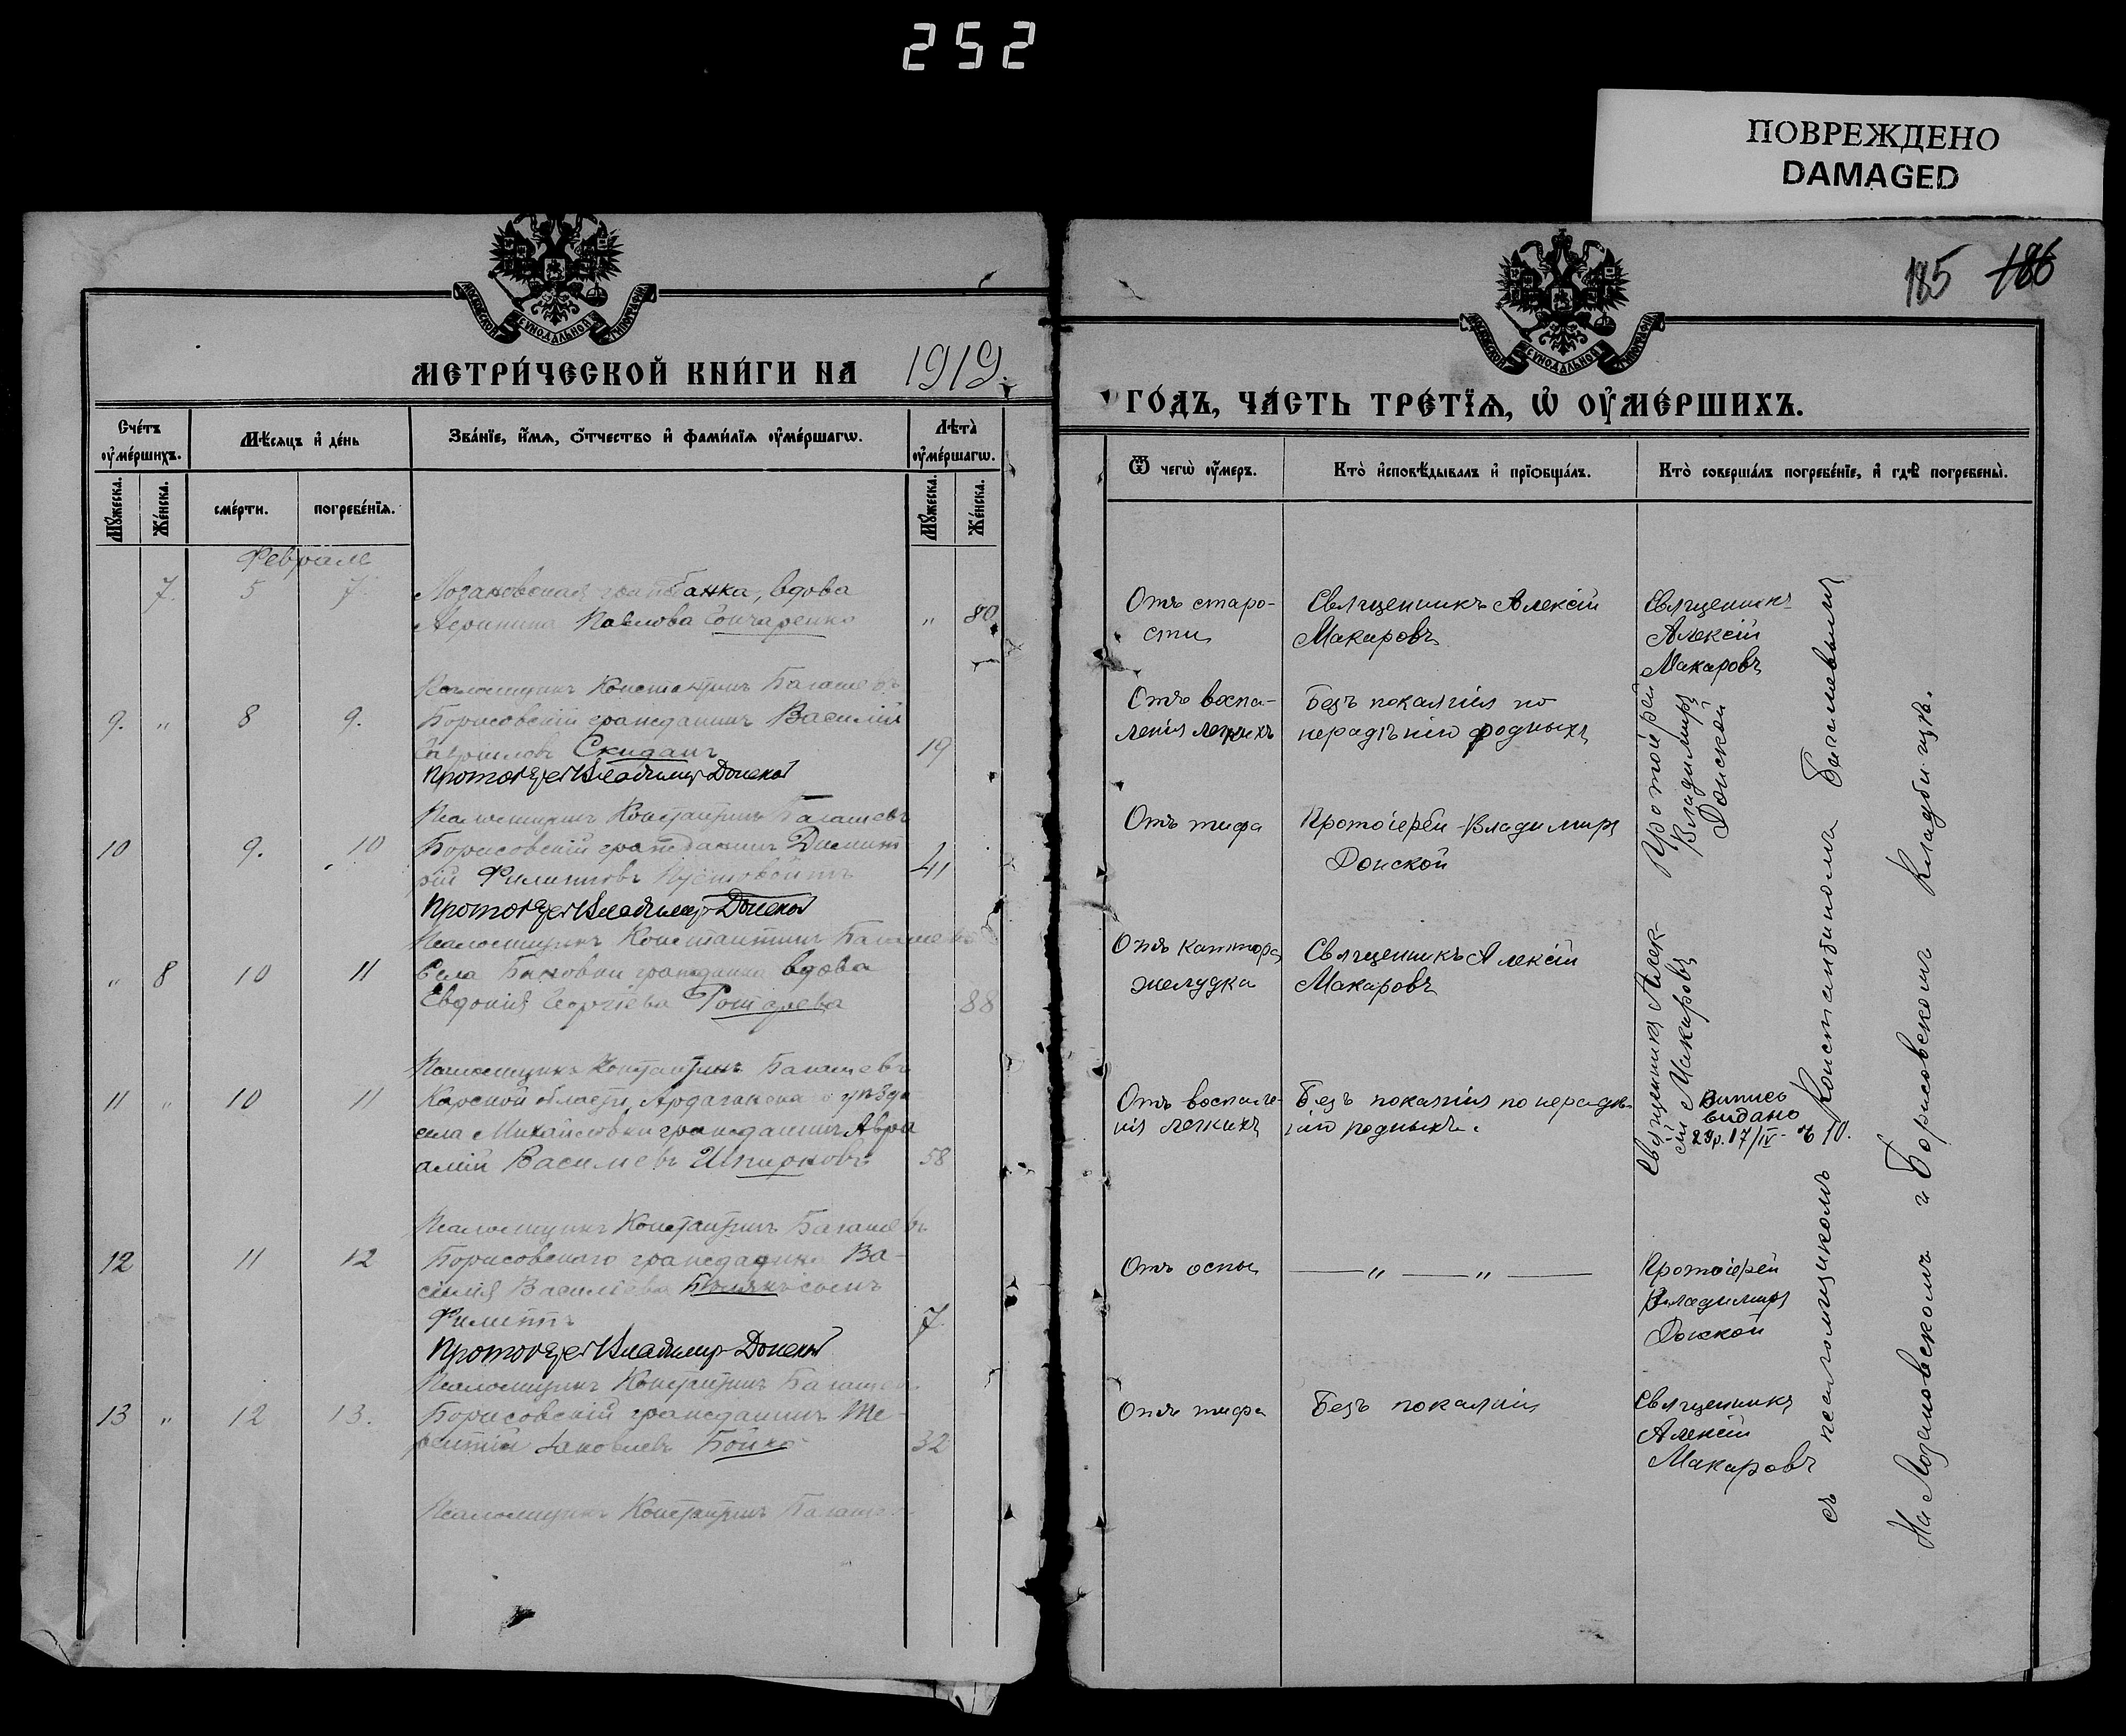 252
ПОВРЕЖДЕНО
DAMAGED
185 186
МЕТРИ́ЧЕСКОЙ КНИ́ГИ НА 1919
ГО́ДЪ, ЧА́СТЬ ТРЕ́ТЇѦ, Ѡ҆ ОУ҆МЕ́РШИХЪ.
Сче́тъ оу҆ме́ршихъ.
Мѣ́сяцъ и҆ де́нь
Зва́нїе, и҆́мѧ, ѻ҆́тчество и҆ фами́лїѧ оу҆ме́ршагѡ.
Лѣ́та оу҆ме́ршагѡ.
Мꙋ́жеска.
Же́нска.
сме́рти.
погребе́нїѧ.
Мꙋ́жеска.
Же́нска.
Ѿ чегѡ̀ оу҆́меръ.
Кто̀ и҆сповѣ́дывалъ и҆ прїѻбща́лъ.
Кто̀ соверша́лъ погребе́нїе, и҆ гдѣ̀ погребены̀.
Февраль
7. 5 7.
Лозановская гражданка, вдова
Павлова Гончаренко " 80
Отъ старо-
сти
Священникъ Алексій
Макаровъ
Священникъ
Алексій
Макаровъ
Псаломщикъ Константинъ Багашевъ
9. " 8 9.
Борисовскій гражданинъ Василій
Гавриловъ Скиданъ 19
Протоіерей Владимиръ Донской
Отъ воспа-
ленія легкихъ
Безъ покаянія по
нерадѣнію родныхъ
Протоіерей
Владимиръ
Донской
Псаломщикъ Константинъ Багашевъ
10 9. 10
Борисовскій гражданинъ Димит
рій Филипповъ 41
Протоіерей Владимиръ Донской
Отъ тифа
Протоіерей Владимиръ
Донской
Псаломщикъ Константинъ Багашевъ
" 8 10 11
Села гражданка вдова
Евдокія Георгіева 88
Отъ каттора
желудка
Священникъ Алексій
Макаровъ
Священникъ Алек-
сій Макаровъ
Псаломщикъ Константинъ Багашевъ
11 " 10 11
Карской области, Ардаганскаго уѣзда
села Михайловки гражданинъ Авра
амій Васильевъ 58
Отъ воспале-
нія легкихъ
Безъ покаянія по нерадѣ-
нію родныхъ.
Випись
видано
29р. 17/IV - № 10.
Псаломщикъ Константинъ Багашевъ
12 11 12
Борисовскаго гражданина Ва-
силія Васильева сынъ
Филиппъ 7
Протоіерей Владимиръ Донской
Отъ оспы
— " — " —
Протоіерей
Владимиръ
Донской
Псаломщикъ Константинъ Багашевъ
13 " 12 13.
Борисовскій гражданинъ Те-
рентій Іаковлевъ Бойко 32
Отъ тифа
Безъ покаянія
Священникъ
Алексій
Макаровъ
Псаломщикъ Константинъ Багашевъ
съ псаломщикомъ Константиномъ Багашевымъ
На Лозановскомъ и Борисовскомъ кладбищѣ.